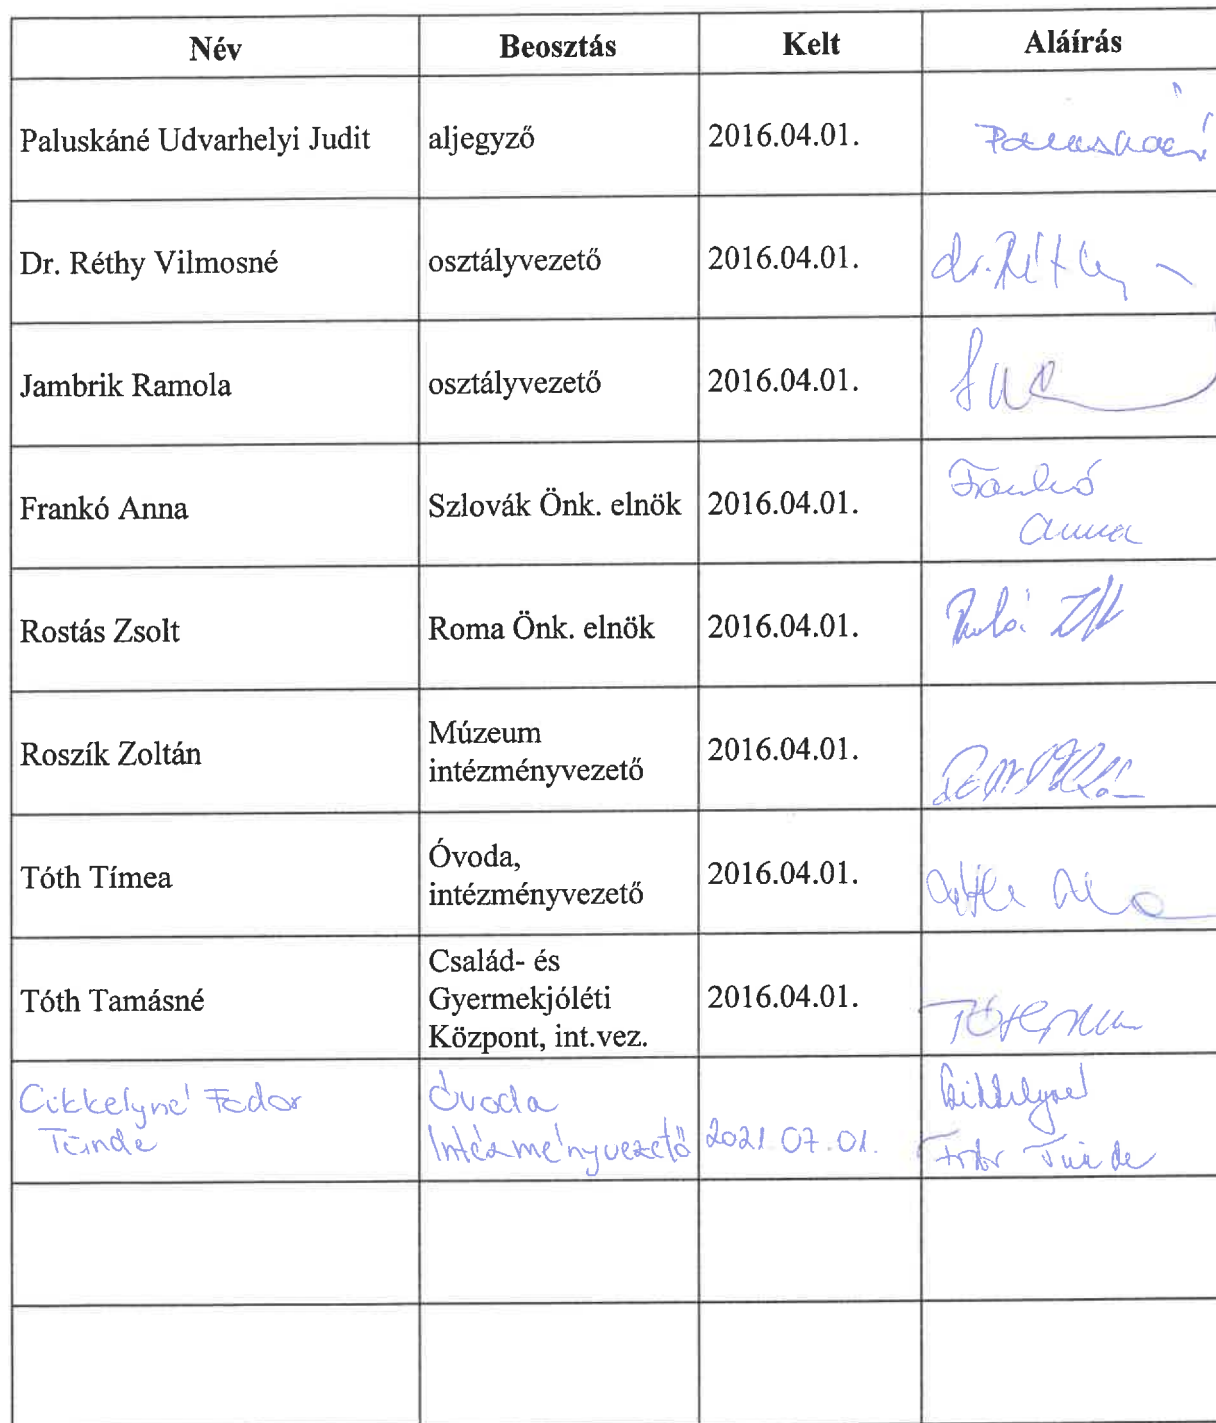 Név Beosztás Kelt Aláírás
Paluskáné Udvarhelyi Judit aljegyző 2016.04.01. Paluskáné
Dr. Réthy Vilmosné osztályvezető 2016.04.01. dr. Réthy
Jambrik Ramola osztályvezető 2016.04.01.
Frankó Anna Szlovák Önk. elnök 2016.04.01. Frankó
Anna
Rostás Zsolt Roma Önk. elnök 2016.04.01.
Roszík Zoltán Múzeum
intézményvezető 2016.04.01.
Tóth Tímea Óvoda,
intézményvezető 2016.04.01.
Tóth Tamásné Család- és
Gyermekjóléti
Központ, int.vez. 2016.04.01.
Cikkelyné Fodor Óvoda Cikkelyné
Tünde Intézményvezető 2021.07.01. Fodor Tünde